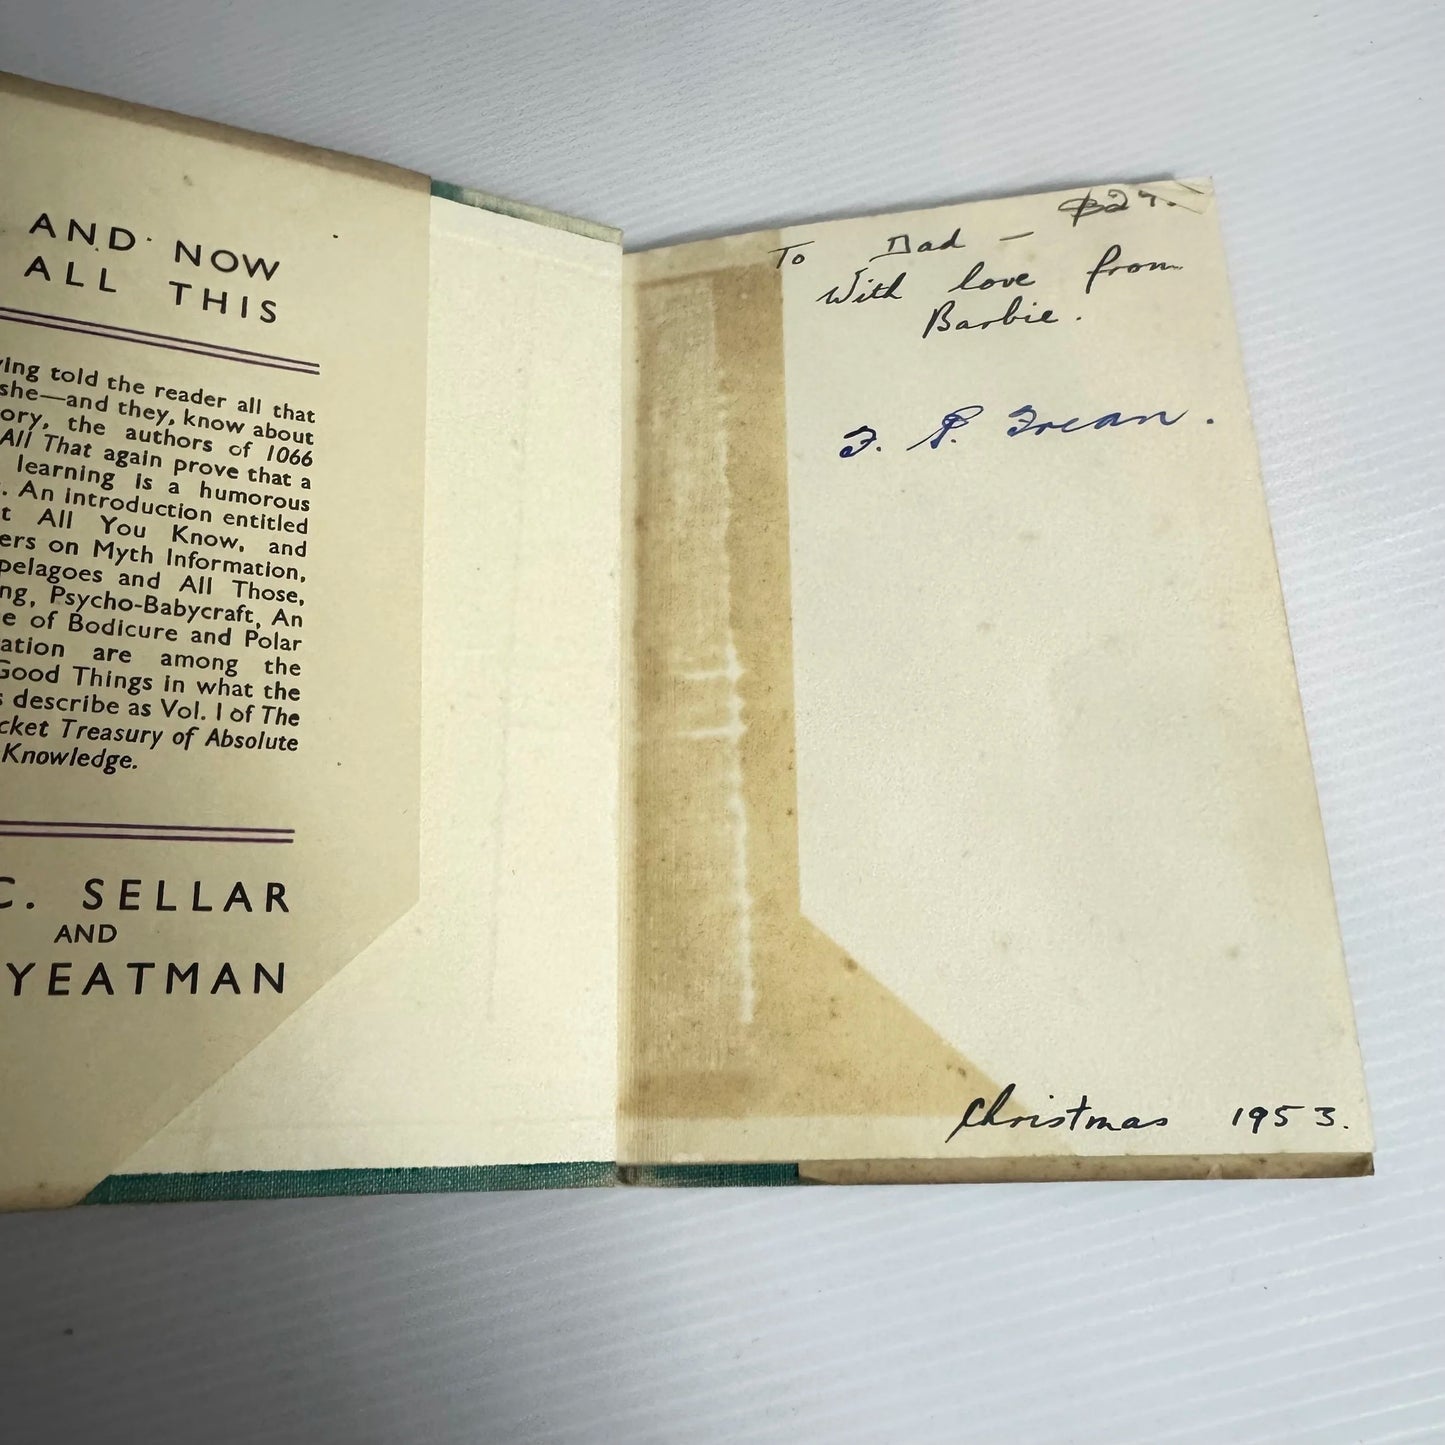 AND NOW
ALL THIS
ving told the reader all that
she—and they, know about
ory, the authors of 1066
All That again prove that a
learning is a humorous
. An introduction entitled
t All You Know, and
ers on Myth Information,
pelagoes and All Those,
ng, Psycho-Babycraft, An
e of Bodicure and Polar
ation are among the
Good Things in what the
s describe as Vol. I of The
cket Treasury of Absolute
Knowledge.
C. SELLAR
AND
YEATMAN
To Dad —
With love from
Barbie.
Christmas 1953.